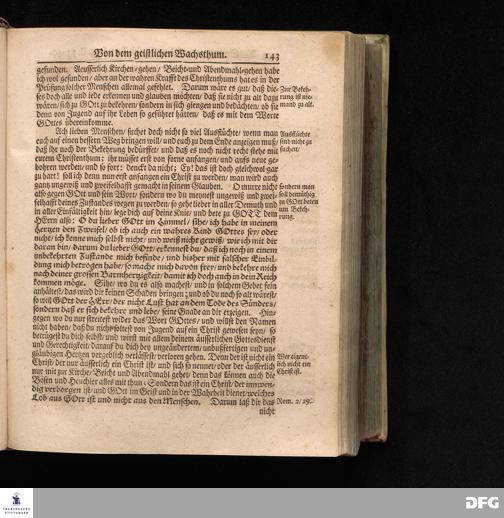 Von dem geistlichen Wachsthum. 143
gefunden. Aeusserlich Kirchen-gehen/ Beicht-und Abendmahl-gehen habe
ich wol gefunden/ aber an der wahren Krafft des Christenthums hat es in der
Prüfung solcher Menschen allemal gefehlet. Darum wäre es gut/ daß die-
ses doch alle und jede erkennen und glauben möchten/ daß sie nicht zu alt dazu
wären/ sich zu GOtt zu bekehren/ sondern in sich giengen und bedächten/ ob sie
denn von Jugend auf ihr Leben so geführet hätten/ daß es mit dem Worte
GOttes übereinkomme.
Zur Bekeh-
rung ist nie-
mand zu alt.
Ach lieben Menschen/ suchet doch nicht so viel Ausflüchte/ wenn man
euch auf einen bessern Weg bringen will/ und euch zu dem Ende anzeigen muß/
daß ihr noch der Bekehrung bedürffet/ und daß es noch nicht recht stehe mit
eurem Christenthum; ihr müsset erst von forne anfangen/ und aufs neue ge-
bohren werden/ und so fort: denckt da nicht: Ey! das ist doch gleichwol gar
zu hart! soll ich denn nun erst anfangen ein Christ zu werden/ man wird auch
gantz ungewiß und zweifelhafft gemacht in seinem Glauben. O murre nicht
also gegen GOtt und sein Wort/ sondern wo du meynest ungewiß und zwei-
felhafft deines Zustandes wegen zu werden/ so gehe lieber in aller Demuth und
in aller Einfältigkeit hin/ lege dich auf deine Knie/ und bete zu GOTT dem
HErrn also: O du lieber GOtt im Himmel/ sihe/ ich habe in meinem
Hertzen den Zweifel/ ob ich auch ein wahres Kind GOttes sey/ oder
nicht/ ich kenne mich selbst nicht/ und weiß nicht gewiß/ wie ich mit dir
daran bin/ darum du lieber GOtt/ erkennest du/ daß ich noch in einem
unbekehrten Zustande mich befinde/ und bisher mit falscher Einbil-
dung mich betrogen habe/ so mache mich davon frey/ und bekehre mich
nach deiner grossen Barmhertzigkeit/ damit ich doch auch in dein Reich
kommen möge. Sihe/ wo du es also machest/ und in solchem Gebet fein
anhältest/ das wird dir keinen Schaden bringen; und ob du noch so alt wärest/
so will GOtt der HErr/ der nicht Lust hat an dem Tode des Sünders/
sondern daß er sich bekehre und lebe/ seine Gnade an dir erzeigen. Hin-
gegen wo du nur streitest wider das Wort GOttes/ und wilst den Namen
nicht haben/ daß du nicht soltest von Jugend auf ein Christ gewesen seyn/ so
betrügest du dich selbst/ und wirst mit allem deinem äusserlichen Gottesdienst
und Gerechtigkeit/ darauf du dich bey ungeändertem/ unbußfertigen und un-
gläubigen Hertzen vergeblich verlässest/ verloren gehen. Denn der ist nicht ein
Christ/ der nur äusserlich ein Christ ist/ und sich so nennet/ oder der äusserlich
nur mit zur Kirche/ Beicht und Abendmahl gehet/ denn das können auch die
Bösen und Heuchler alles mit thun; Sondern das ist ein Christ/ der inwen-
dig verborgen ist/ und GOtt im Geist und in der Wahrheit dienet/ welches
Lob aus GOtt ist und nicht aus den Menschen. Darum laß dir das
nicht
Ausflüchte
sind nicht zu
suchen/
sondern man
soll demüthig
zu GOtt beten
um Bekeh-
rung.
Wer eigent-
lich nicht ein
Christ ist.
Rom. 2/29.
FRANCKESCHE
STIFTUNGEN
DFG